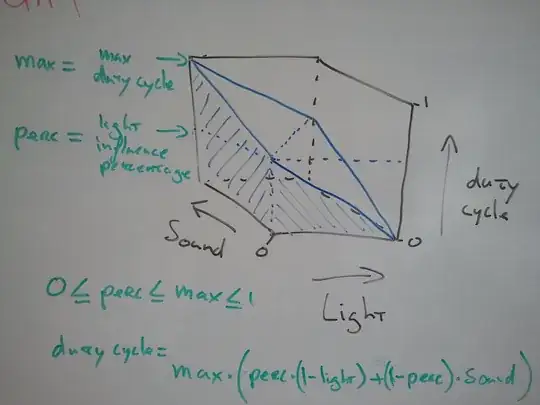 max = max
duty cycle
perc = light
influence
percentage
1
duty
cycle
0
0
Sound
Light
0 ≤ perc ≤ max ≤ 1
duty cycle =
max·(perc·(1-light)+(1-perc)·Sound)